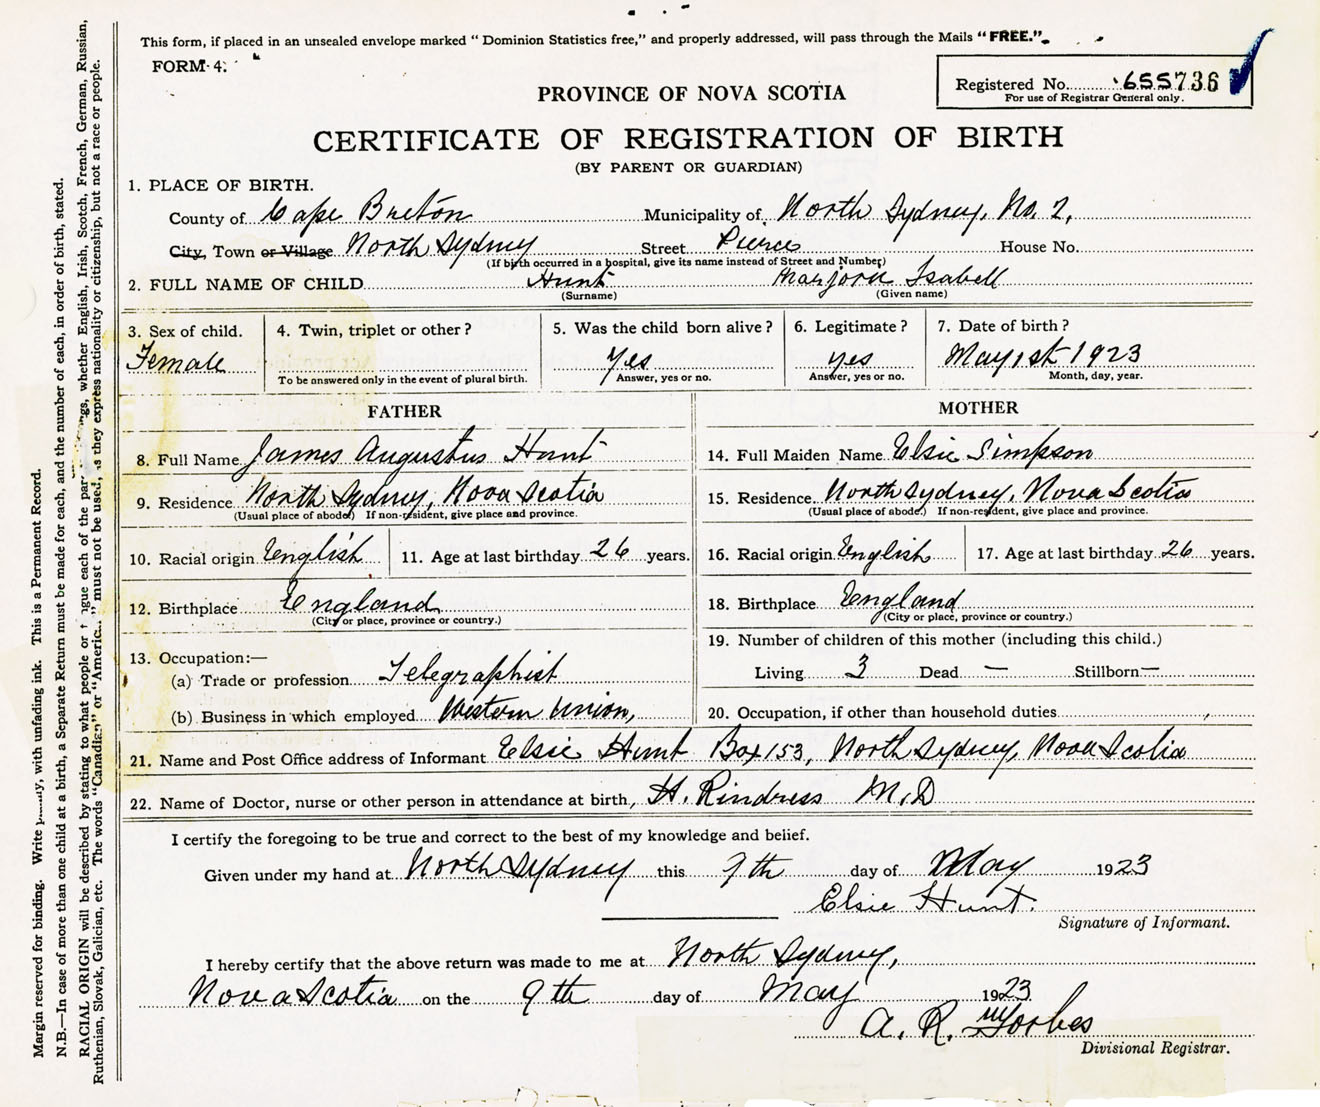 This form, if placed in an unsealed envelope marked “ Dominion Statistics free,” and properly addressed, will pass through the Mails “FREE.”
FORM 4.
Registered No. 655736
For use of Registrar General only.
PROVINCE OF NOVA SCOTIA
CERTIFICATE OF REGISTRATION OF BIRTH
(BY PARENT OR GUARDIAN)
1. PLACE OF BIRTH.
County of Cape Breton Municipality of North Sydney, No. 2,
City, Town or Village North Sydney Street Pierce House No.
(If birth occurred in a hospital, give its name instead of Street and Number)
2. FULL NAME OF CHILD Hunt Marjora Isabell
(Surname) (Given name)
3. Sex of child. 4. Twin, triplet or other? 5. Was the child born alive? 6. Legitimate? 7. Date of birth?
Female Yes yes May 1st 1923
To be answered only in the event of plural birth. Answer, yes or no. Answer, yes or no. Month, day, year.
FATHER MOTHER
8. Full Name James Augustus Hunt 14. Full Maiden Name Elsie Simpson
9. Residence North Sydney, Nova Scotia 15. Residence North Sydney, Nova Scotia
(Usual place of abode) If non-resident, give place and province. (Usual place of abode.) If non-resident, give place and province.
10. Racial origin English 11. Age at last birthday 26 years. 16. Racial origin English 17. Age at last birthday 26 years.
12. Birthplace England 18. Birthplace England
(City or place, province or country.) (City or place, province or country.)
13. Occupation:— 19. Number of children of this mother (including this child.)
(a) Trade or profession Telegraphist Living 3 Dead — Stillborn —
(b) Business in which employed Western Union, 20. Occupation, if other than household duties
21. Name and Post Office address of Informant Elsie Hunt Box 153, North Sydney, Nova Scotia
22. Name of Doctor, nurse or other person in attendance at birth, H. Rindress M.D
I certify the foregoing to be true and correct to the best of my knowledge and belief.
Given under my hand at North Sydney this 9th day of May 1923
Elsie Hunt.
Signature of Informant.
I hereby certify that the above return was made to me at North Sydney,
Nova Scotia on the 9th day of May 1923
A. R. Forbes
Divisional Registrar.
Margin reserved for binding. Write with unfading ink. This is a Permanent Record.
N.B.—In case of more than one child at a birth, a Separate Return must be made for each, and the number of each, in order of birth, stated.
RACIAL ORIGIN will be described by stating to what people or each of the whether English, Irish, Scotch, French, German, Russian,
Ruthenian, Slovak, Galician, etc. The words “Canadian” or “Americ...” must not be used, they express nationality or citizenship, but not a race or people.